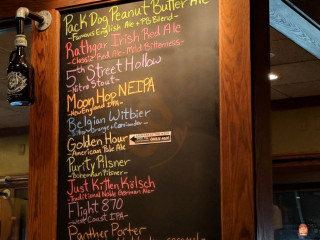 Pack Dog Peanut Butter Ale
-Famous English Ale + PB Blend-
Rathgar Irish Red Ale
-Classic Red Ale - Mild Bitterness-
5th Street Hollow
-Nitro Stout-
Moon Hop NEIPA
-New England IPA-
Belgian Witbier
-Bitter Orange + Coriander-
Golden Hour
-American Pale Ale-
Purity Pilsner
-Bohemian Pilsner-
Just Kitten Kölsch
-Traditional Noble German Ale-
Flight 870
-West Coast IPA-
Panther Porter